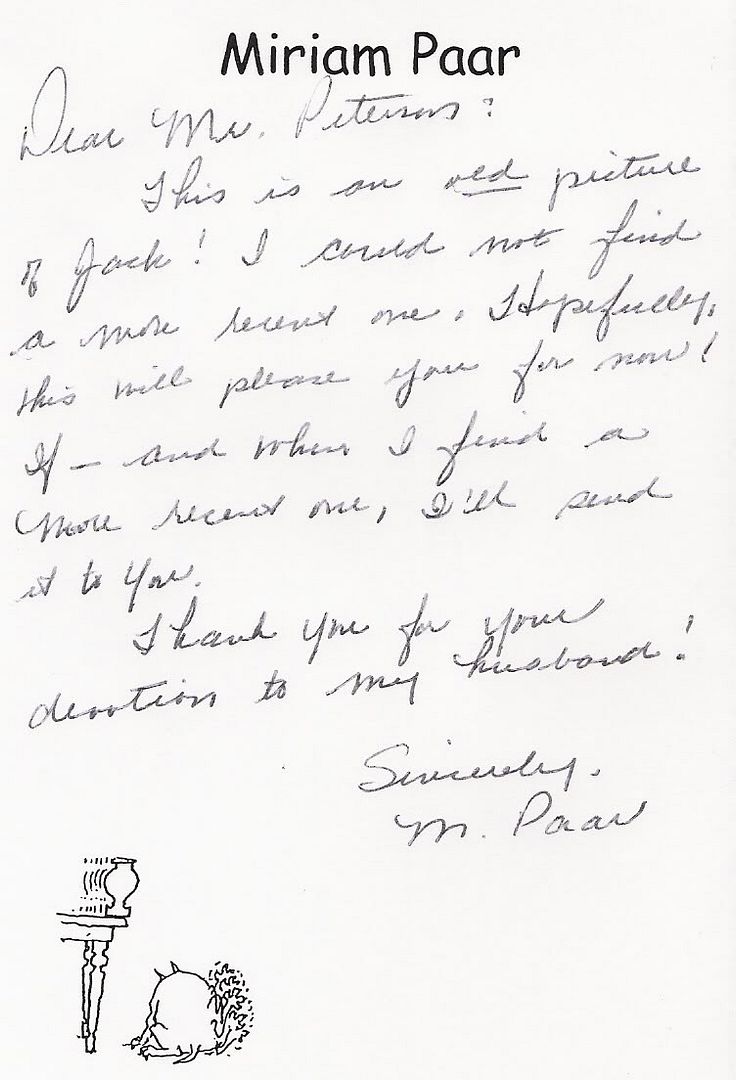 Miriam Paar
Dear Mr. Peterson:
This is an old picture
of Jack! I could not find
a more recent one. Hopefully,
this will please you for now!
If — and when I find a
more recent one, I'll send
it to you.
Thank you for your
devotion to my husband!
Sincerely,
M. Paar